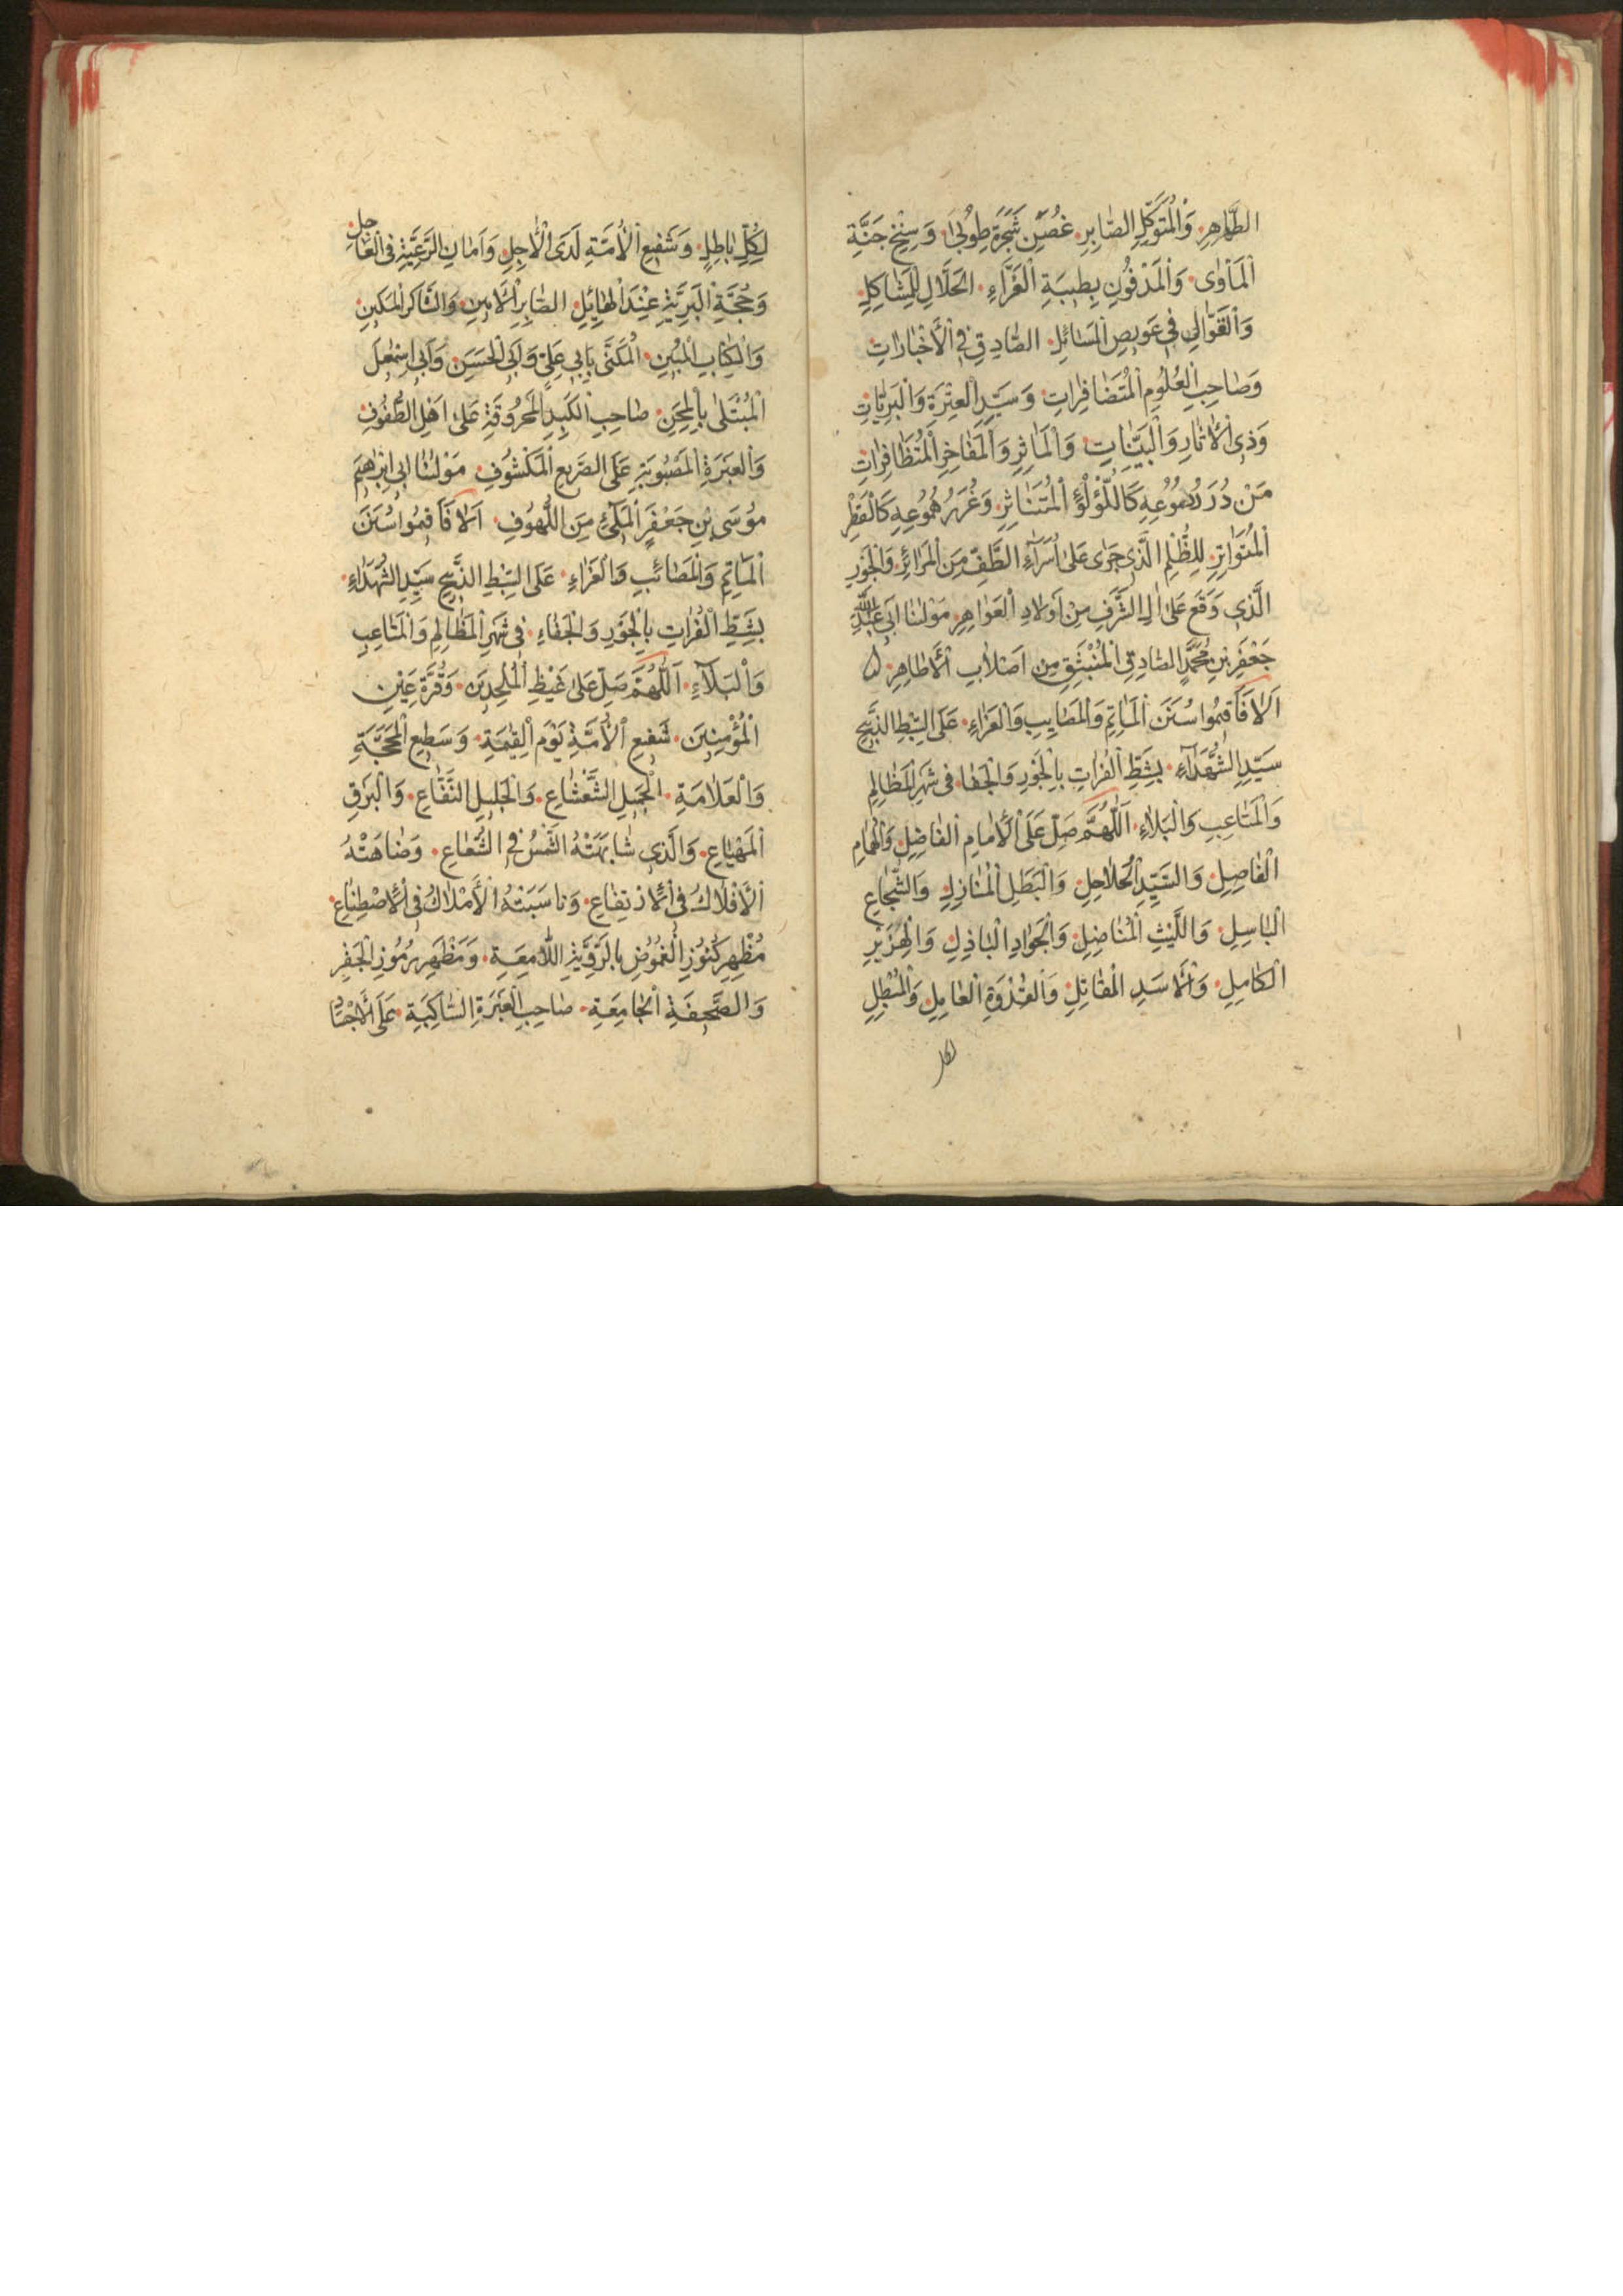 الطَّاهِرِ وَالْمُتَوَكِّلِ الصَّابِرِ غُصْنِ شَجَرَةِ طُوْبٰى وَسِنْخِ جَنَّةِ
الْمَأْوٰى وَالْمَدْفُوْنِ بِطَيْبَةِ الْغَرَّاءِ الْحَلَّالِ لِلْمَشَاكِلِ
وَالْقَوَّالِ فِي عَوِيْصِ الْمَسَائِلِ الصَّادِقِ فِي الْأَخْبَارَاتِ
وَصَاحِبِ الْعُلُوْمِ الْمُتَضَافِرَاتِ وَسَيِّدِ الْعِتْرَةِ وَالْبَرِيَّاتِ
وَذِي الْاٰثَارِ وَالْبَيِّنَاتِ وَالْمَاٰثِرِ وَالْمَفَاخِرِ الْمُتَظَافِرَاتِ
مَنْ دُرَرُ دُمُوْعِهِ كَاللُّؤْلُؤِ الْمُتَنَاثِرِ وَغُرَرُ هُمُوْعِهِ كَالْقَطْرِ
الْمُتَوَاتِرِ لِلظُّلْمِ الَّذِي جَرٰى عَلٰى اُسَرَآءِ الطَّفِّ مِنَ الْمَرَائِرِ وَالْجَوْرِ
الَّذِي وَقَعَ عَلٰى اٰلِ الشَّرَفِ مِنْ اَوْلَادِ الْعَوَاهِرِ مَوْلٰنَا اَبِي عَبْدِ اللّٰهِ
جَعْفَرِ بْنِ مُحَمَّدٍ الصَّادِقِ الْمُنْبَثِقِ مِنْ اَصْلَابِ الْأَطَاهِرِ
اَلَا فَاَقِيْمُوا سُنَنَ الْمَاٰتِمِ وَالْمَصَايِبِ وَالْعَزَاءِ عَلَى السِّبْطِ الذَّبِيْحِ
سَيِّدِ الشُّهَدَآءِ بِشَطِّ الْفُرَاتِ بِالْجَوْرِ وَالْجَفَا فِى شَهْرِ الْمَظَالِمِ
وَالْمَتَاعِبِ وَالْبَلَاءِ اَللّٰهُمَّ صَلِّ عَلَى الْاِمَامِ الْفَاضِلِ وَالْهُمَامِ
الْفَاصِلِ وَالسَّيِّدِ الْحُلَاحِلِ وَالْبَطَلِ الْمُنَازِلِ وَالشُّجَاعِ
الْبَاسِلِ وَاللَّيْثِ الْمُنَاضِلِ وَالْجَوَادِ الْبَاذِلِ وَالْهِزَبْرِ
الْكَامِلِ وَالْأَسَدِ الْمُقَاتِلِ وَالْقُدْوَةِ الْعَامِلِ وَالْمُبْطِلِ
لكل
لِكُلِّ بَاطِلٍ وَشَفِيْعِ الْأُمَّةِ لَدَى الْاٰجِلِ وَاَمَانِ الرَّعِيَّةِ فِى الْعَاجِلِ
وَحُجَّةِ الْبَرِيَّةِ عِنْدَ الْهَائِلِ الصَّابِرِ الْاَمِيْنِ وَالشَّاكِرِ الْمَكِيْنِ
وَالْكِتَابِ الْمُبِيْنِ الْمُكَنّٰى بِاَبِي عَلِيٍّ وَاَبِي الْحَسَنِ وَاَبِي اِسْمٰعِيْلَ
الْمُبْتَلٰى بِالْمِحَنِ صَاحِبِ الْكَبِدِ الْمَحْرُوْقَةِ عَلٰى اَهْلِ الطُّفُوْفِ
وَالْعَبْرَةِ الْمَصْبُوْبَةِ عَلَى الصَّرِيْعِ الْمَكْشُوْفِ مَوْلٰنَا اَبِي اِبْرٰهِيْمَ
مُوْسَى بْنِ جَعْفَرٍ الْمَلِيْءِ مِنَ اللُّهُوْفِ اَلَا فَاَقِيْمُوا سُنَنَ
الْمَاٰتِمِ وَالْمَصَائِبِ وَالْعَزَاءِ عَلَى السِّبْطِ الذَّبِيْحِ سَيِّدِ الشُّهَدَاءِ
بِشَطِّ الْفُرَاتِ بِالْجَوْرِ وَالْجَفَاءِ فِى شَهْرِ الْمَظَالِمِ وَالْمَتَاعِبِ
وَالْبَلَآءِ اَللّٰهُمَّ صَلِّ عَلٰى غَيْظِ الْمُلْحِدِيْنَ وَقُرَّةِ عَيْنِ
الْمُؤْمِنِيْنَ شَفِيْعِ الْأُمَّةِ يَوْمَ الْقِيٰمَةِ وَسَطِيْعِ الْمَحَجَّةِ
وَالْعَلَامَةِ الْجَمِيْلِ الشَّعْشَاعِ وَالْجَلِيْلِ النَّفَّاعِ وَالْبَرْقِ
الْمَهْيَاعِ وَالَّذِي شَابَهَتْهُ الشَّمْسُ فِي الشُّعَاعِ وَضَاهَتْهُ
الْأَفْلَاكُ فِى الْاِرْتِفَاعِ وَنَاسَبَتْهُ الْأَمْلَاكُ فِى الْاِصْطِنَاعِ
مُظْهِرِ كُنُوْزِ الْغُمُوْضِ بِالرَّوِيَّةِ اللَّامِعَةِ وَمَظْهَرِ رُمُوْزِ الْجَفْرِ
وَالصَّحِيْفَةِ الْجَامِعَةِ صَاحِبِ الْعَبْرَةِ السَّاكِبَةِ عَلَى